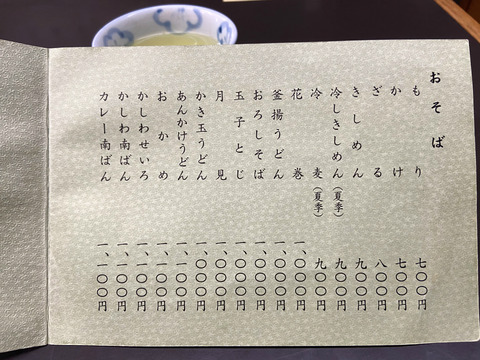 おそば
もり 七〇〇円
かけ 七〇〇円
ざる 八〇〇円
きしめん 九〇〇円
冷しきしめん(夏季) 九〇〇円
冷麦(夏季) 九〇〇円
花巻 一、〇〇〇円
釜揚うどん 一、〇〇〇円
おろしそば 一、〇〇〇円
玉子とじ 一、〇〇〇円
月見 一、〇〇〇円
かき玉うどん 一、〇〇〇円
あんかけうどん 一、〇〇〇円
おかめ 一、一〇〇円
かしわせいろ 一、一〇〇円
かしわ南ばん 一、一〇〇円
カレー南ばん 一、一〇〇円